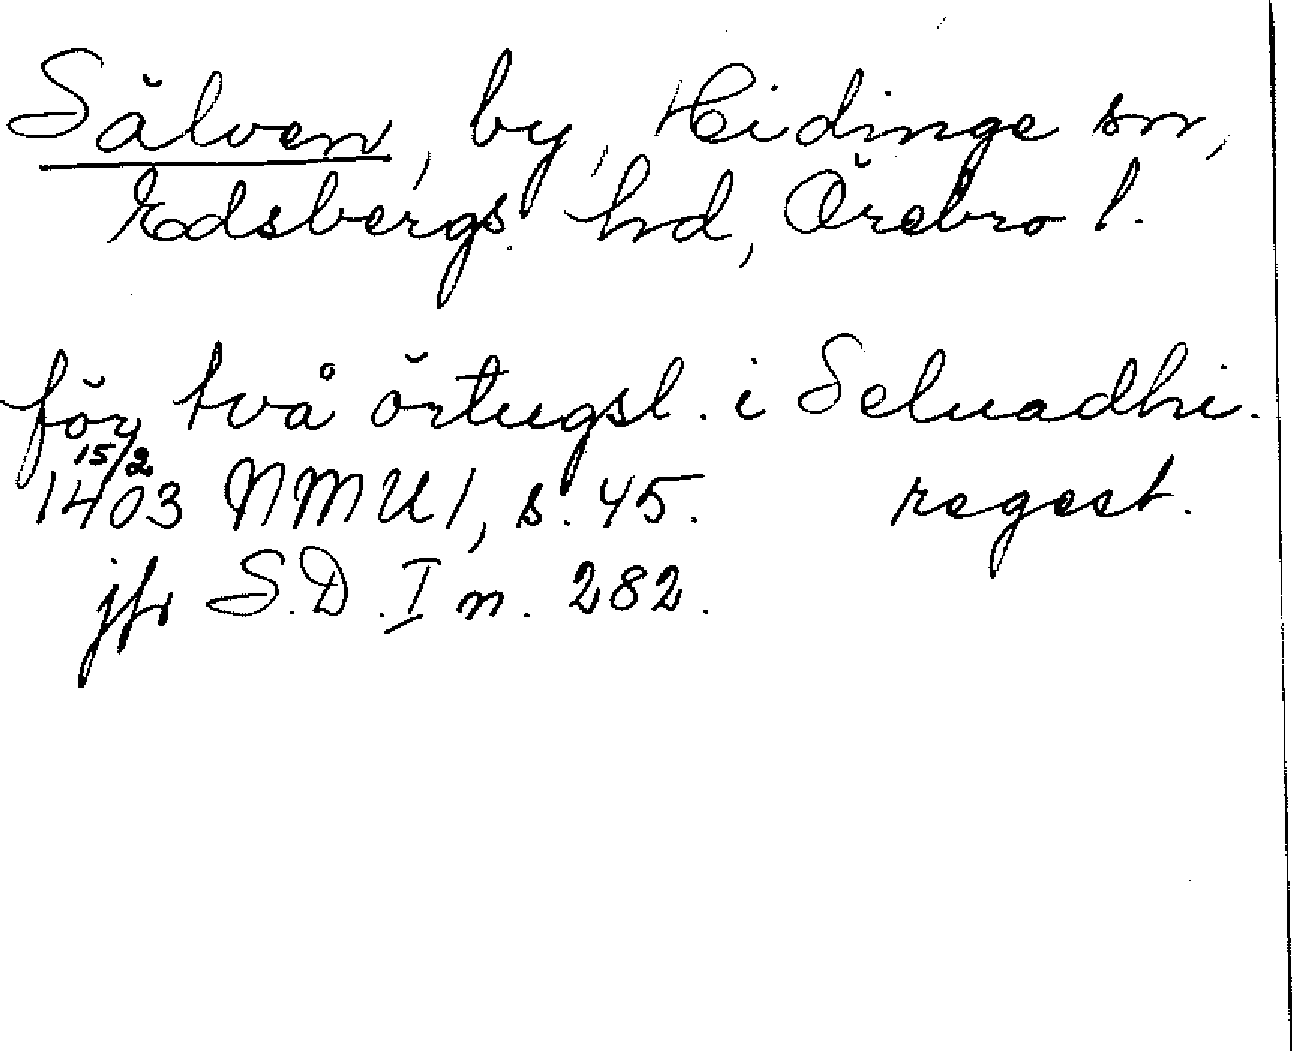 Sälven, by, Hidinge sn,
Edsbergs hd, Örebro l.
för två örtugsl. i Seluadhi.
15/2
1403 NMU 1, s. 45. regest.
jfr S.D. I n. 282.